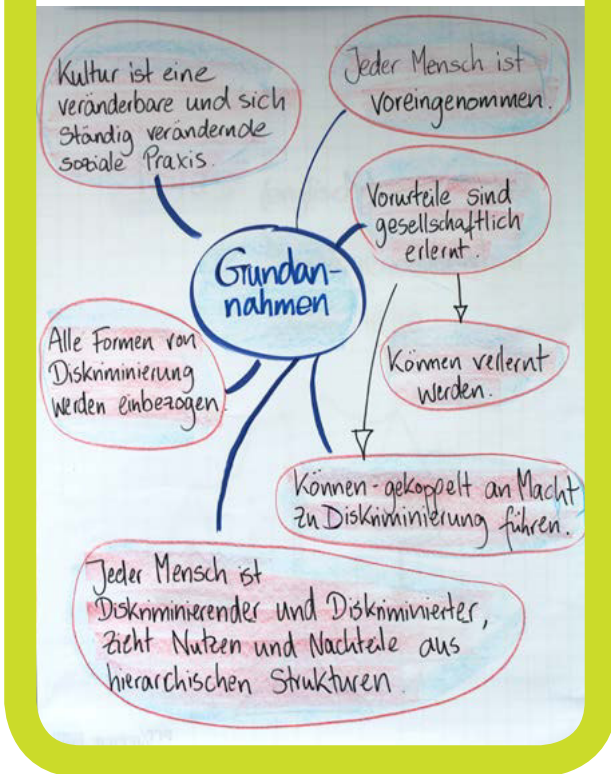 Kultur ist eine
veränderbare und sich
ständig verändernde
soziale Praxis.
Jeder Mensch ist
voreingenommen.
Vorurteile sind
gesellschaftlich
erlernt.
Grundan-
nahmen
Alle Formen von
Diskriminierung
werden einbezogen.
Können verlernt
werden.
Können - gekoppelt an Macht
zu Diskriminierung führen.
Jeder Mensch ist
Diskriminierender und Diskriminierter,
zieht Nutzen und Nachteile aus
hierarchischen Strukturen.